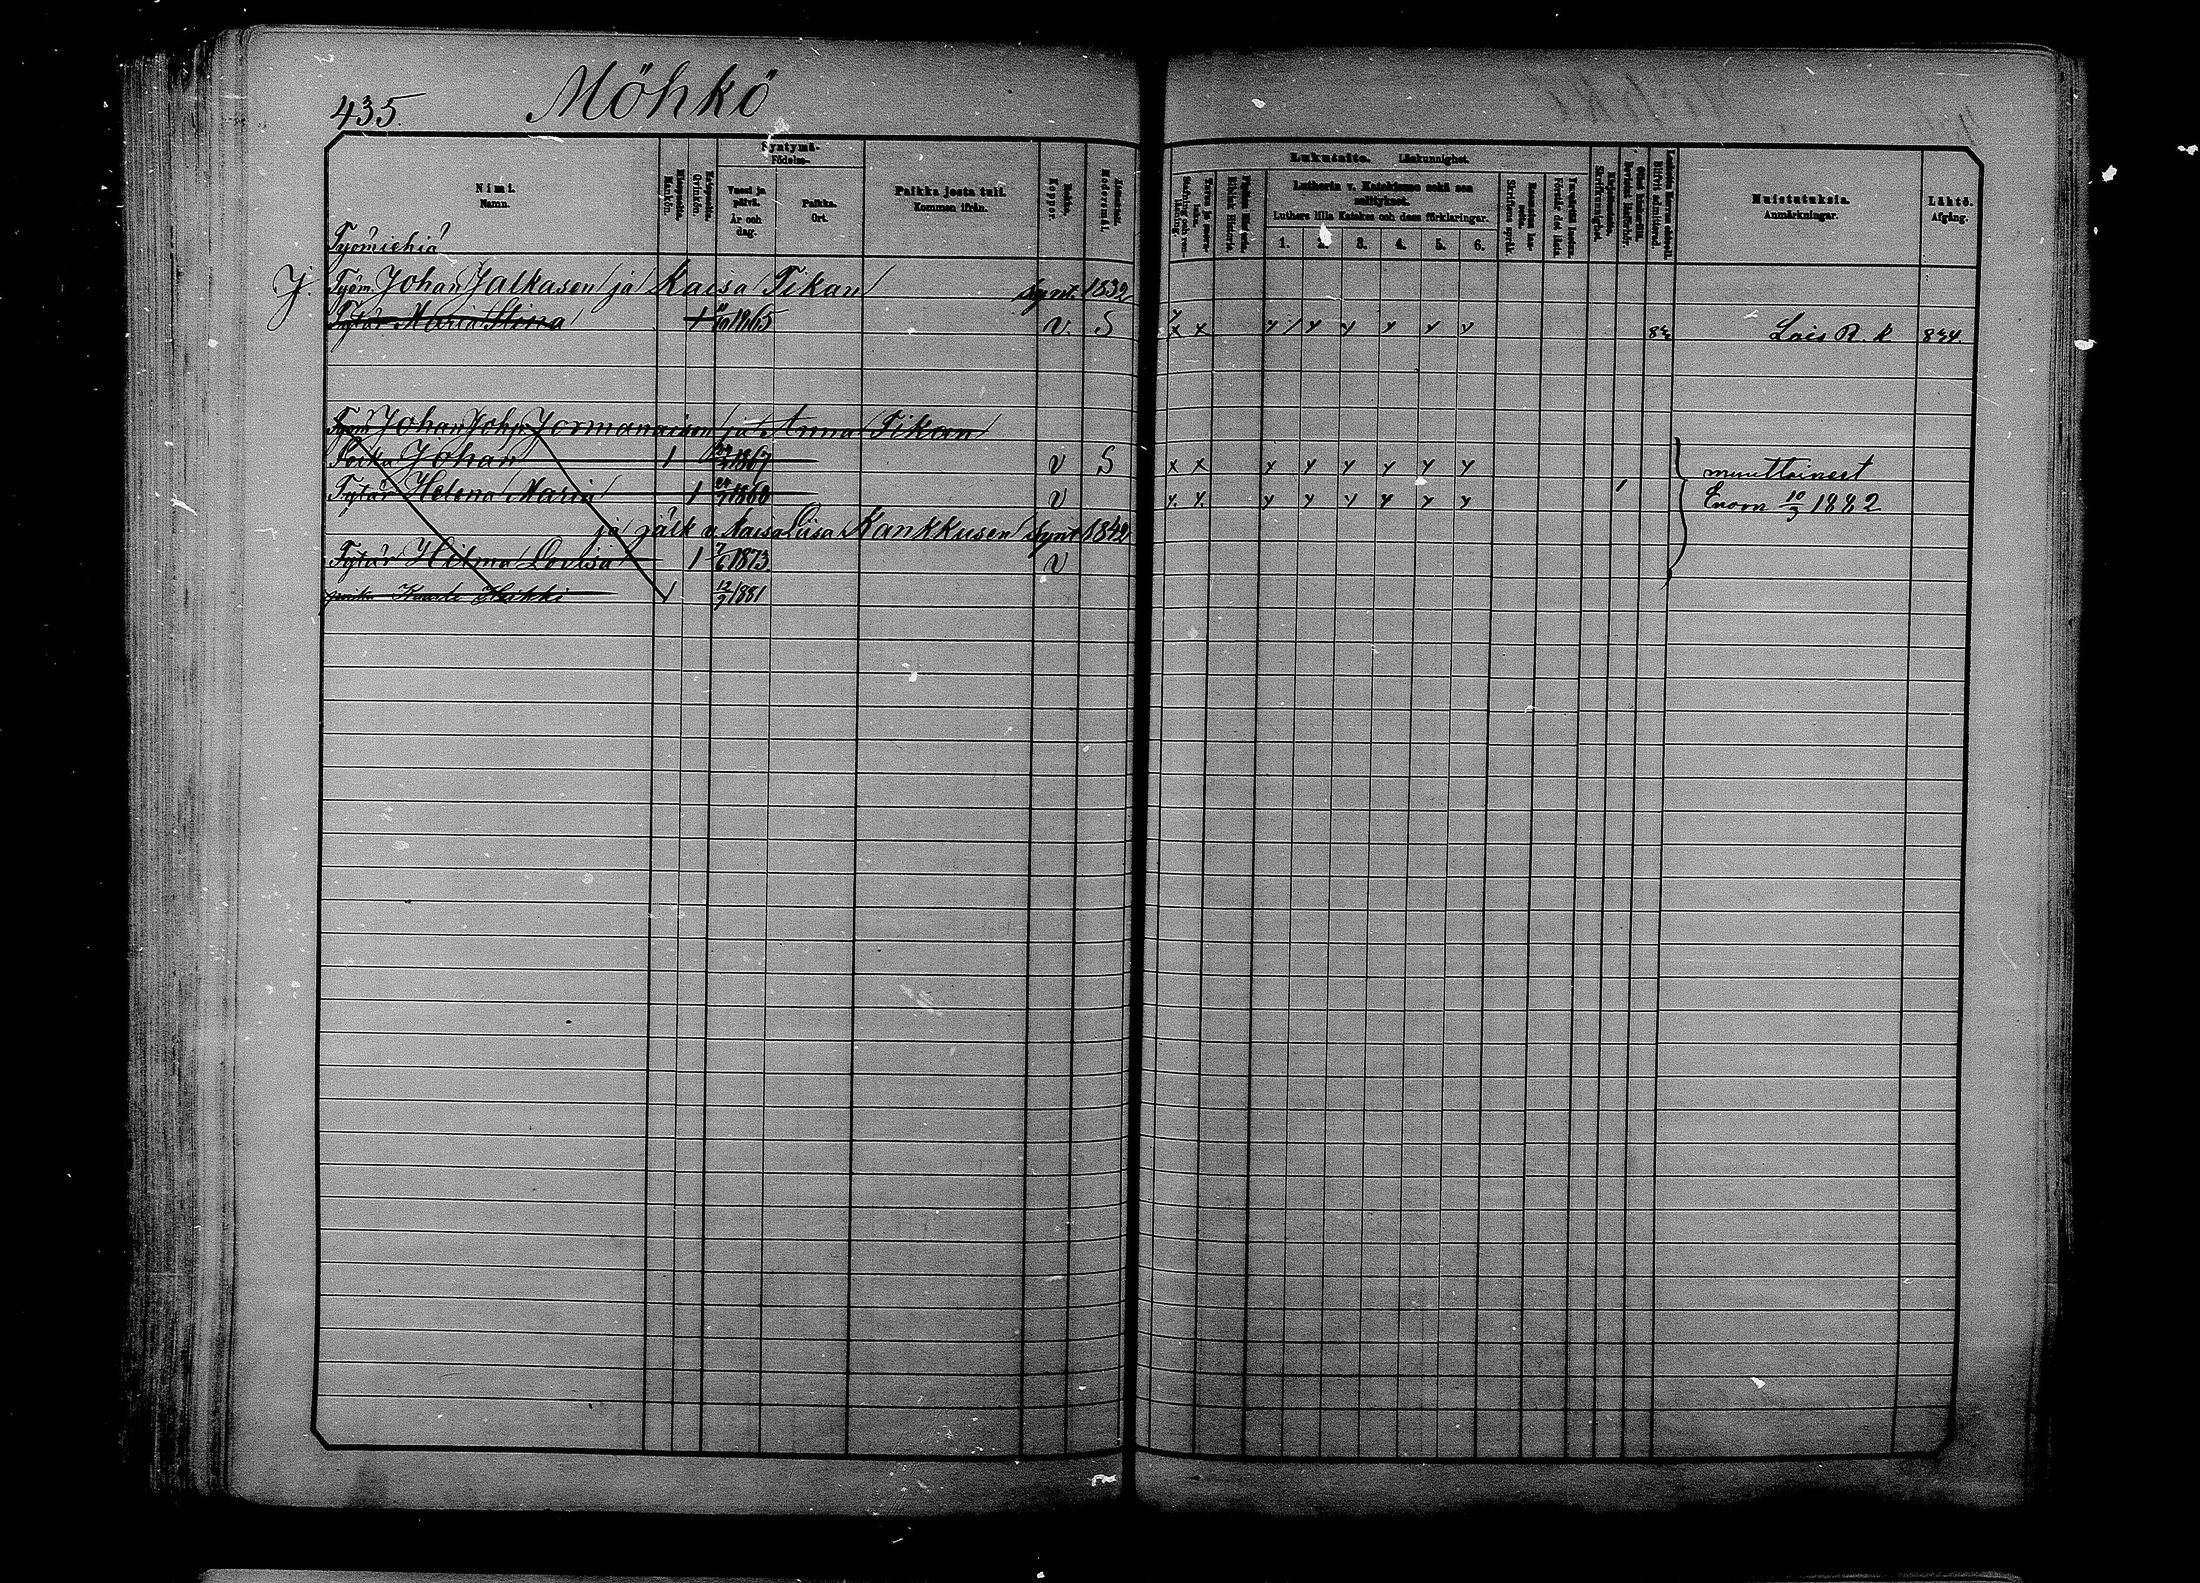 435. Möhkö
Nimi. Namn.
Miespuolia. Mankön.
Vaimopuolia. Qvinkön.
Syntymä- Födelse-
Vuosi ja päivä. År och dag.
Paikka. Ort.
Paikka josta tuli. Kommen ifrån.
Rokko. Koppor.
Modersmål.
Lukutaito. Läskunnighet.
Lutherin v. Katekismo sekä sen selitykset.
Luthers lilla Katekes och dess förklaringar.
1. 2. 3. 4. 5. 6.
Muistutuksia. Anmärkningar.
Lähtö. Afgång.
Työmiehiä
J. Työm. Johan Jalkasen ja Kaisa Tikan Synt. 1832
Tytär Maria Stina 1 1865 v. S x x y y y y y y Lais R. k. 844
Työm Johan Joh.p. Jormanaisen ja Anna Tikan
Poika Johan 1 1867 v S x x y y y y y y muuttaneet
Tytär Helena Maria 1 1860 v y. y. y y y y y y 1 Enoon 10/3 1882
ja jälk. v. Kaisa Liisa Kankkusen Synt 1842
Tytär Hilma Lovisa 1 7/6 1873. v
poika Kusti Heikki 1 12/9 1881